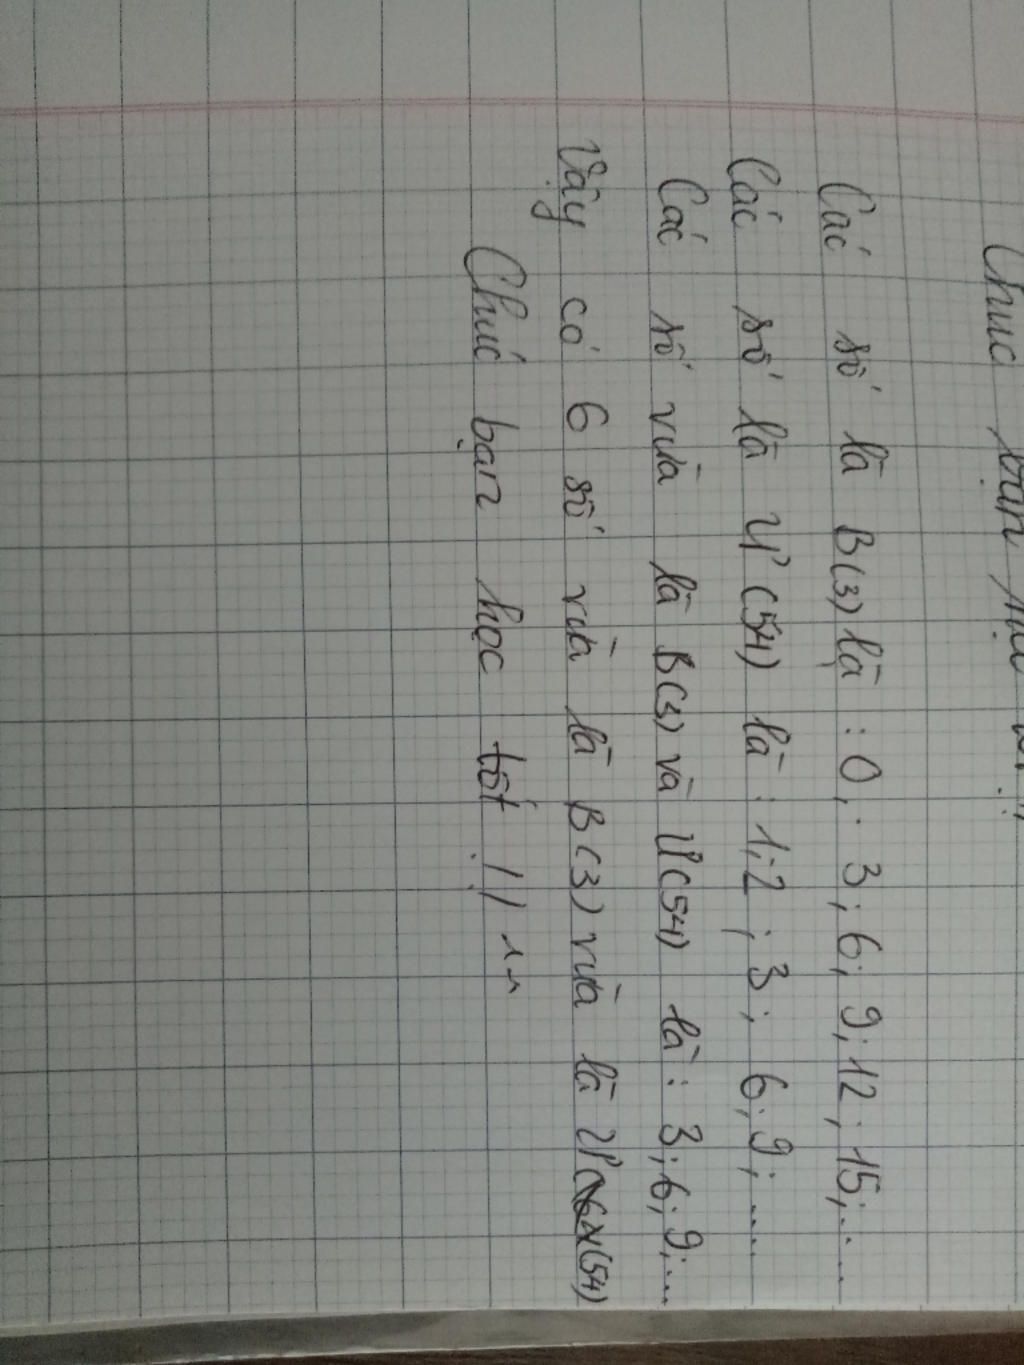 Chúc bạn học
Các số là B(3) là : 0; 3; 6; 9; 12; 15; ...
Các số là Ư(54) là : 1; 2; 3; 6; 9; ....
Các số vừa là B(3) và Ư(54) là : 3; 6; 9; ...
Vậy có 6 số vừa là B(3) vừa là Ư(54)
Chúc bạn học tốt !! ^^